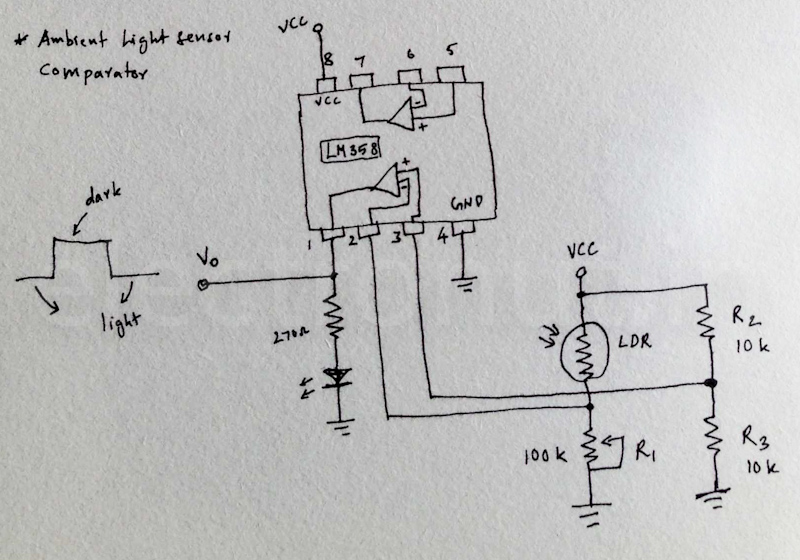 * Ambient Light sensor
Comparator
VCC
8 7 6 5
VCC
- +
LM358
+
-
GND
1 2 3 4
dark
light
Vo
270Ω
VCC
LDR
R2
10k
100k
R1
R3
10k